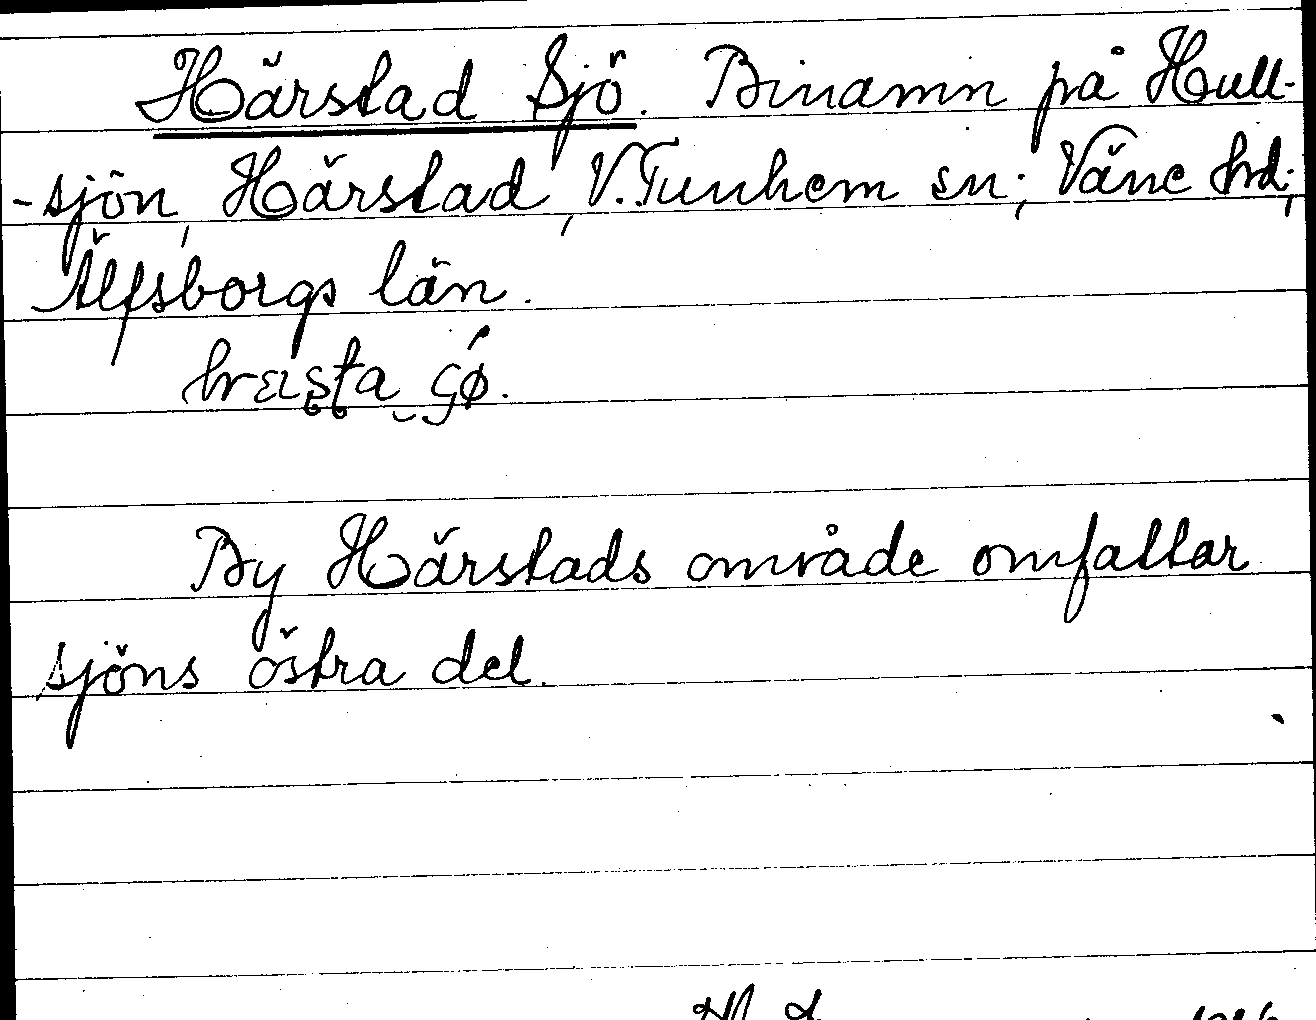 Härstad Sjö. Binamn på Hull-
-sjön, Härstad, V. Tunhem sn; Väne hd;
Älfsborgs län.
By Härstads område omfattar
sjöns östra del.